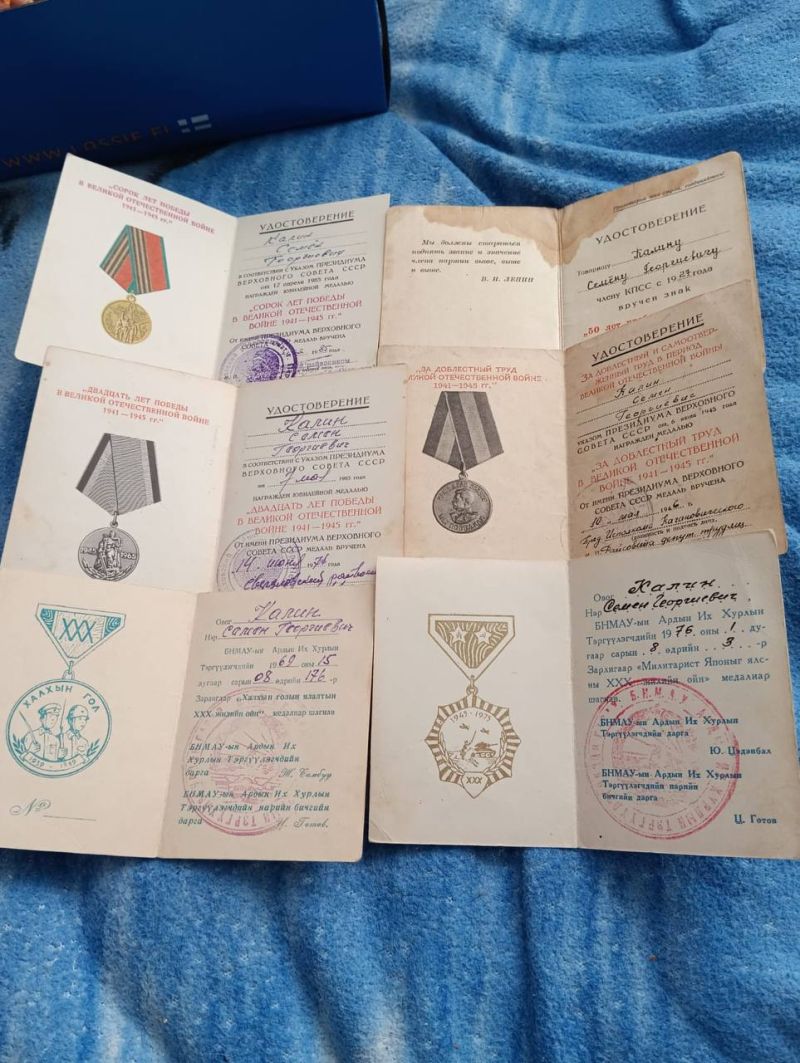 WWW.LASSIE.FI
„СОРОК ЛЕТ ПОБЕДЫ
В ВЕЛИКОЙ ОТЕЧЕСТВЕННОЙ ВОЙНЕ
1941—1945 гг.“
УДОСТОВЕРЕНИЕ
Калин
Семён
Георгиевич
В СООТВЕТСТВИИ С УКАЗОМ ПРЕЗИДИУМА
ВЕРХОВНОГО СОВЕТА СССР
от 12 апреля 1985 года
НАГРАЖДЕН ЮБИЛЕЙНОЙ МЕДАЛЬЮ
„СОРОК ЛЕТ ПОБЕДЫ
В ВЕЛИКОЙ ОТЕЧЕСТВЕННОЙ
ВОЙНЕ 1941—1945 гг.“
ОТ ИМЕНИ ПРЕЗИДИУМА ВЕРХОВНОГО
СОВЕТА СССР МЕДАЛЬ ВРУЧЕНА
85 года
Мы должны стараться
поднять звание и значение
члена партии выше, выше
и выше.
В. И. ЛЕНИН
Пролетарии всех стран, соединяйтесь!
УДОСТОВЕРЕНИЕ
Товарищу Калину
Семёну Георгиевичу
члену КПСС с года
вручен знак
„50 лет
„ДВАДЦАТЬ ЛЕТ ПОБЕДЫ
В ВЕЛИКОЙ ОТЕЧЕСТВЕННОЙ ВОЙНЕ
1941—1945 гг.“
1945 1965
УДОСТОВЕРЕНИЕ
Калин
Семён
Георгиевич
В СООТВЕТСТВИИ С УКАЗОМ ПРЕЗИДИУМА
ВЕРХОВНОГО СОВЕТА СССР
от 7 мая 1965 года
НАГРАЖДЕН ЮБИЛЕЙНОЙ МЕДАЛЬЮ
„ДВАДЦАТЬ ЛЕТ ПОБЕДЫ
В ВЕЛИКОЙ ОТЕЧЕСТВЕННОЙ
ВОЙНЕ 1941—1945 гг.“
ОТ ИМЕНИ ПРЕЗИДИУМА ВЕРХОВНОГО
СОВЕТА СССР МЕДАЛЬ ВРУЧЕНА
14 июня
„ЗА ДОБЛЕСТНЫЙ ТРУД
ЛИКОЙ ОТЕЧЕСТВЕННОЙ ВОЙНЕ
1941—1945 гг.“
УДОСТОВЕРЕНИЕ
ЗА ДОБЛЕСТНЫЙ И САМООТВЕР-
ЖЕННЫЙ ТРУД В ПЕРИОД
ВЕЛИКОЙ ОТЕЧЕСТВЕННОЙ ВОЙНЫ
Калин
Семен
Георгиевич
УКАЗОМ ПРЕЗИДИУМА ВЕРХОВНОГО
СОВЕТА СССР от 6 июня 1945 года
НАГРАЖДЕН МЕДАЛЬЮ
„ЗА ДОБЛЕСТНЫЙ ТРУД
В ВЕЛИКОЙ ОТЕЧЕСТВЕННОЙ
ВОЙНЕ 1941—1945 гг.“
ОТ ИМЕНИ ПРЕЗИДИУМА ВЕРХОВНОГО
СОВЕТА СССР МЕДАЛЬ ВРУЧЕНА
10 мая 1946 г.
XXX
ХАЛХЫН ГОЛ
1939 1969
№
Овог Калин
Нэр Семён Георгиевич
БНМАУ-ын Ардын Их Хурлын
Тэргүүлэгчдийн 1969 оны 15
дугаар сарын 08 өдрийн 176-р
Зарлигаар «Халхын голын ялалтын
XXX жилийн ойн» медалиар шагнав
БНМАУ-ын Ардын Их
Хурлын Тэргүүлэгчдийн
дарга Ж. Самбуу
БНМАУ-ын Ардын Их Хурлын
Тэргүүлэгчдийн нарийн бичгийн
дарга Ц. Готов.
1945-1975
XXX
Овог Калин
Нэр Семен Георгиевич
БНМАУ-ын Ардын Их Хурлын
Тэргүүлэгчдийн 1976 оны 1 ду-
гаар сарын 8 өдрийн 3 -р
Зарлигаар «Милитарист Японыг ялс-
ны XXX жилийн ойн» медалиар
шагнав.
БНМАУ-ын Ардын Их Хурлын
Тэргүүлэгчдийн дарга
Ю. Цэдэнбал
БНМАУ-ын Ардын Их Хурлын
Тэргүүлэгчдийн нарийн
бичгийн дарга
Ц. Готов